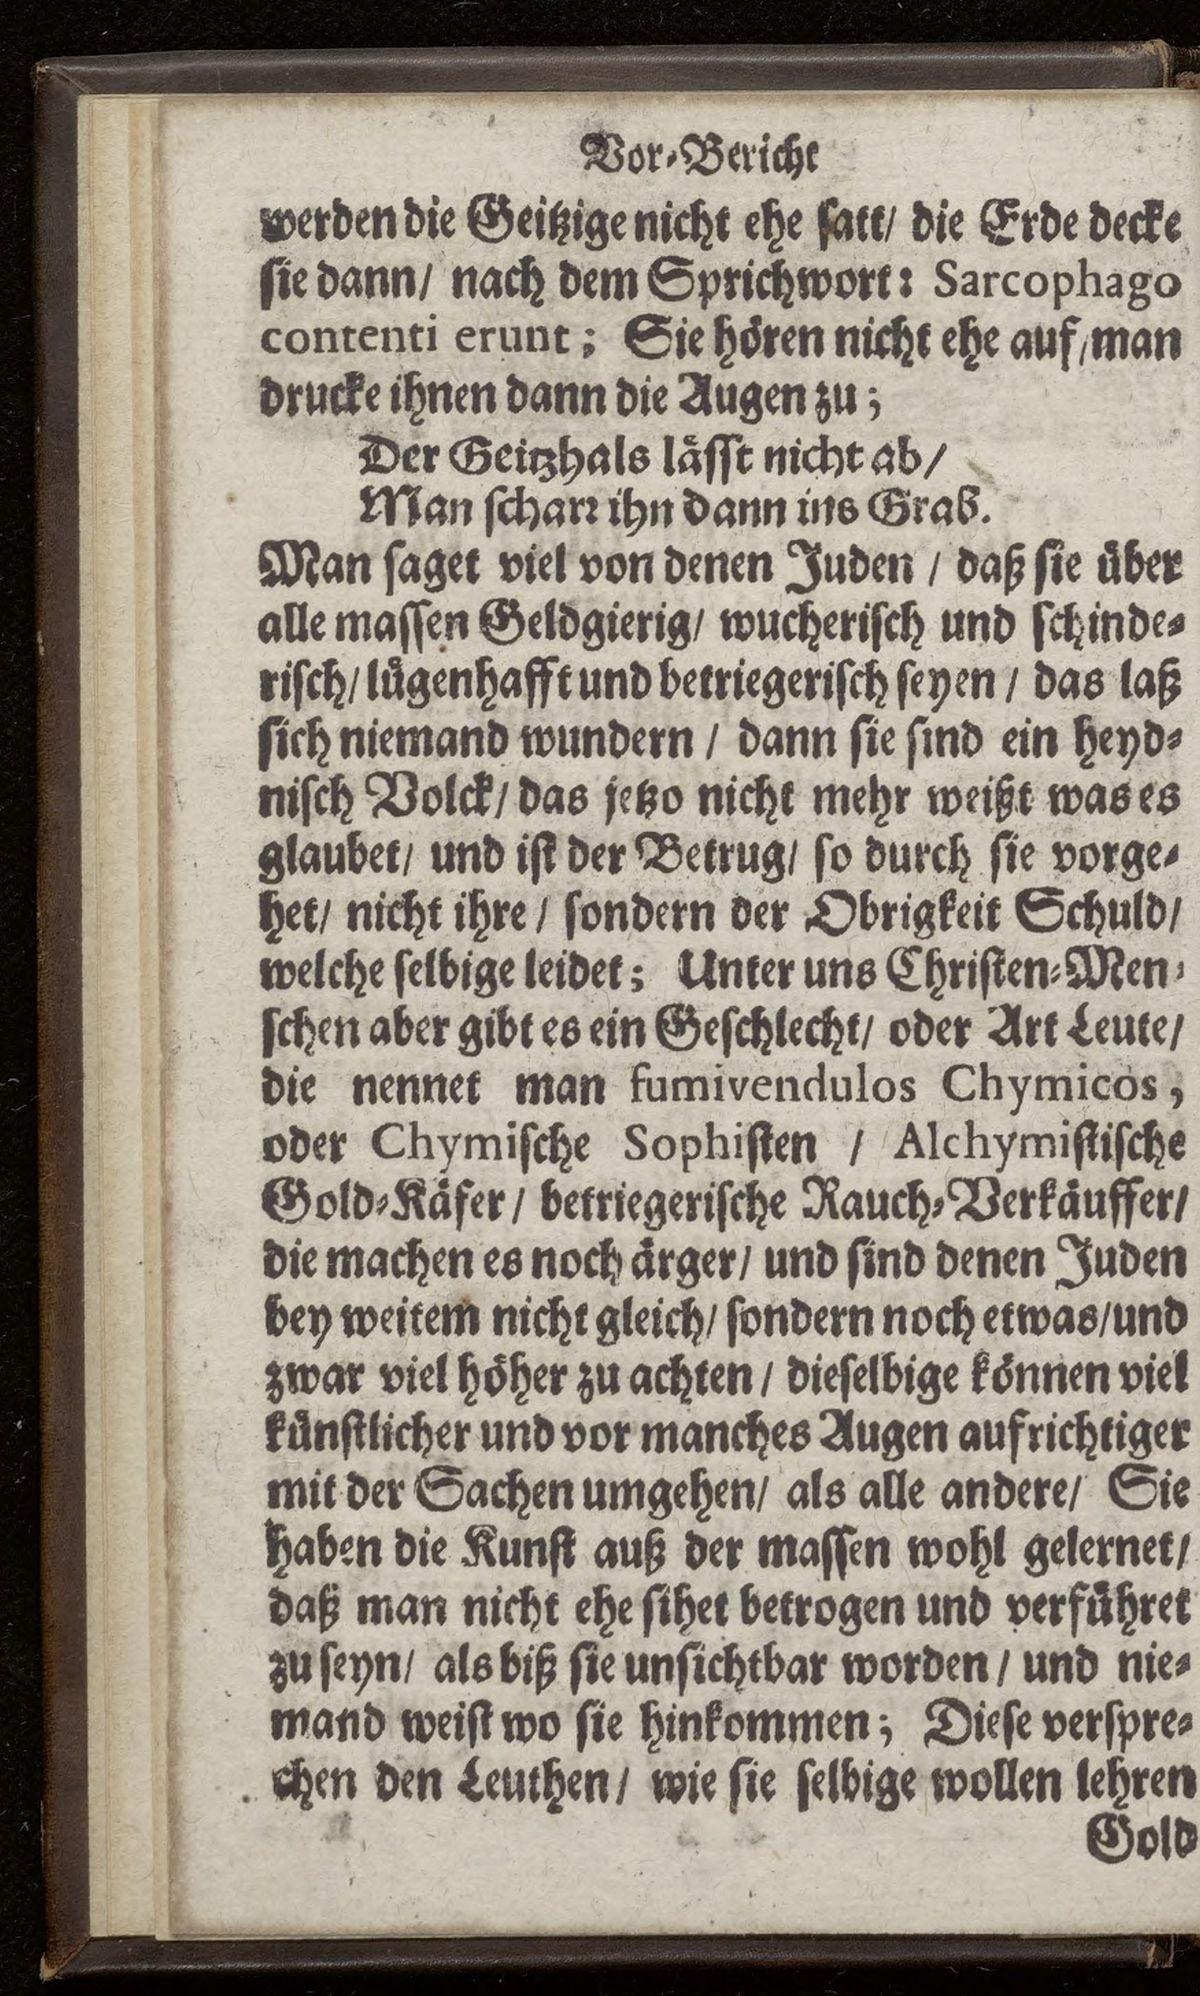 Vor-Bericht
werden die Geitzige nicht ehe satt/ die Erde decke
sie dann/ nach dem Sprichwort: Sarcophago
contenti erunt; Sie hören nicht ehe auf/man
drucke ihnen dann die Augen zu;
Der Geitzhals lässt nicht ab/
Man scharr ihn dann ins Grab.
Man saget viel von denen Juden / daß sie über
alle massen Geldgierig/ wucherisch und schinde-
risch/ lügenhafft und betriegerisch seyen / das laß
sich niemand wundern / dann sie sind ein heyd-
nisch Volck/ das jetzo nicht mehr weißt was es
glaubet/ und ist der Betrug/ so durch sie vorge-
het/ nicht ihre / sondern der Obrigkeit Schuld/
welche selbige leidet; Unter uns Christen-Men-
schen aber gibt es ein Geschlecht/ oder Art Leute/
die nennet man fumivendulos Chymicos,
oder Chymische Sophisten / Alchymistische
Gold-Käfer / betriegerische Rauch-Verkäuffer/
die machen es noch ärger/ und sind denen Juden
bey weitem nicht gleich/ sondern noch etwas/und
zwar viel höher zu achten / dieselbige können viel
künstlicher und vor manches Augen aufrichtiger
mit der Sachen umgehen/ als alle andere/ Sie
haben die Kunst auß der massen wohl gelernet/
daß man nicht ehe sihet betrogen und verführet
zu seyn/ als biß sie unsichtbar worden / und nie-
mand weist wo sie hinkommen; Diese verspre-
chen den Leuthen / wie sie selbige wollen lehren
Gold